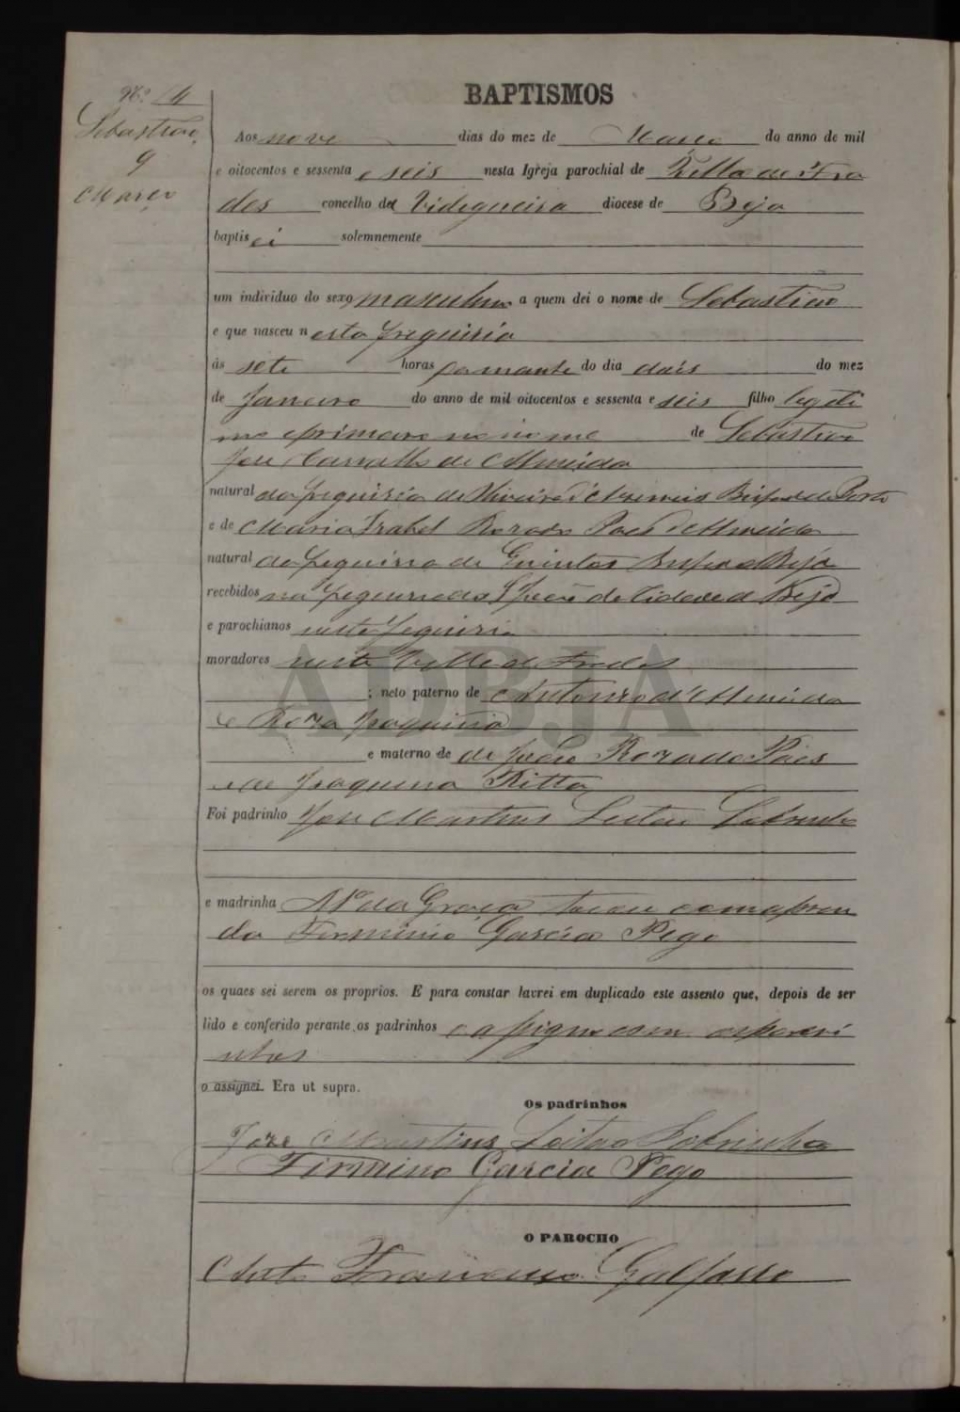 BAPTISMOS
Nº 14
Sebastião,
9
Março
Aos nove dias do mez de Março do anno de mil
e oitocentos e sessenta e seis nesta Igreja parochial de Villa de Fra
des concelho de Vidigueira diocese de Beja
baptisei solemnemente
um individuo do sexo masculino a quem dei o nome de Sebastião
e que nasceu nesta freguisia
ás sete horas da manhã do dia dois do mez
de Janeiro do anno de mil oitocentos e sessenta e seis filho legiti
mo e primeiro no nome de Sebastião
José Carvalho de Almeida
natural da freguisia de Oliveira d'Azemeis Bispado do Porto
e de Maria Izabel Rozado Paes d'Almeida
natural da freguisia de Quintos Bispado Beja
recebidos na freguisia do da Cidade de Beja
e parochianos nesta freguisia
moradores nesta Villa de Frades
; neto paterno de Antonio d'Almeida
e Roza Joaquina
e materno de de João Rozado Paes
e de Joaquina Ritta
Foi padrinho José Martins Leitão Sobrinho
e madrinha Mª da Graça tocou com a pren
da Firmino Garcia Pego
os quaes sei serem os proprios. E para constar lavrei em duplicado este assento que, depois de ser
lido e conferido perante os padrinhos
o assignei. Era ut supra.
Os padrinhos
Joze Martins Leitao Sobrinho
Firmino Garcia Pego
O PAROCHO
Antº Francisco Galfarro
ADBJA